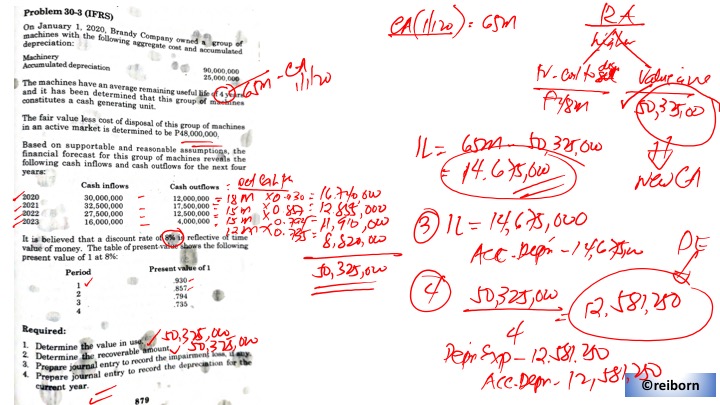 Problem 30-3 (IFRS)
On January 1, 2020, Brandy Company owned a group of
machines with the following aggregate cost and accumulated
depreciation:
Machinery 90,000,000
Accumulated depreciation 25,000,000
65m - CA
1/1/20
The machines have an average remaining useful life of 4 years
and it has been determined that this group of machines
constitutes a cash generating unit.
The fair value less cost of disposal of this group of machines
in an active market is determined to be P48,000,000.
Based on supportable and reasonable assumptions, the
financial forecast for this group of machines reveals the
following cash inflows and cash outflows for the next four
years:
Cash inflows Cash outflows
2020 30,000,000 - 12,000,000 = 18m x 0.930 = 16,740,000
2021 32,500,000 - 17,500,000 = 15m x 0.857 = 12,855,000
2022 27,500,000 - 12,500,000 = 15m x 0.794 = 11,910,000
2023 16,000,000 - 4,000,000 = 12m x 0.735 = 8,820,000
50,325,000
It is believed that a discount rate of 8% is reflective of time
value of money. The table of present value shows the following
present value of 1 at 8%:
Period Present value of 1
1 .930
2 .857
3 .794
4 .735
Required:
1. Determine the value in use. 50,325,000
2. Determine the recoverable amount. 50,325,000
3. Prepare journal entry to record the impairment loss, if any.
4. Prepare journal entry to record the depreciation for the
current year.
879
CA (1/1/20) = 65m
RA
higher
Value in use
50,325,00
New CA
IL = 65m - 50,325,000
= 14,675,000
3 IL = 14,675,000
Acc. Depn - 14,675,000
4 50,325,000
4
= 12,581,250
DE
Depn Exp - 12,581,250
Acc. Depn - 12,581,250
©reiborn